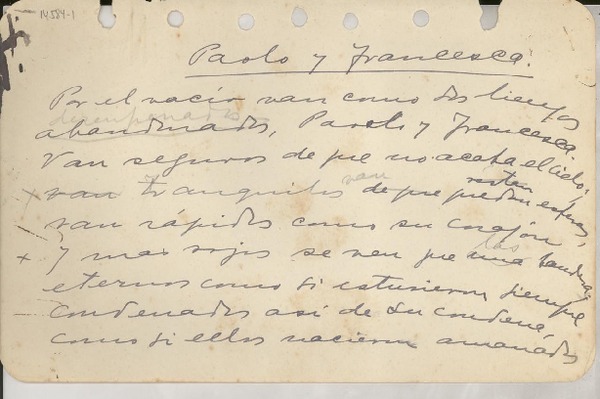 N584-1
Paolo y Francesca.
Por el vacío van como dos lienzos
desempeñados
abandonados, Paolo y Francesca.
Van seguros de que no acaba el cielo;
van
van tranquilos de que restan esferas,
van rápidos como su corazón
y mas rojos se ven que una bandera
las
eternos como si estuvieron siempre
condenados así de su condena
como si ellos nacieron amarrados